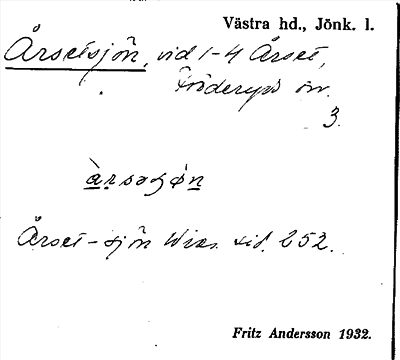 Västra hd., Jönk. l.
Årsetsjön, vid 1-4 Årset,
Fröderyds sn.
3.
àrsəʒø̀n
Årset-sjön Wies. sid. 252.
Fritz Andersson 1932.